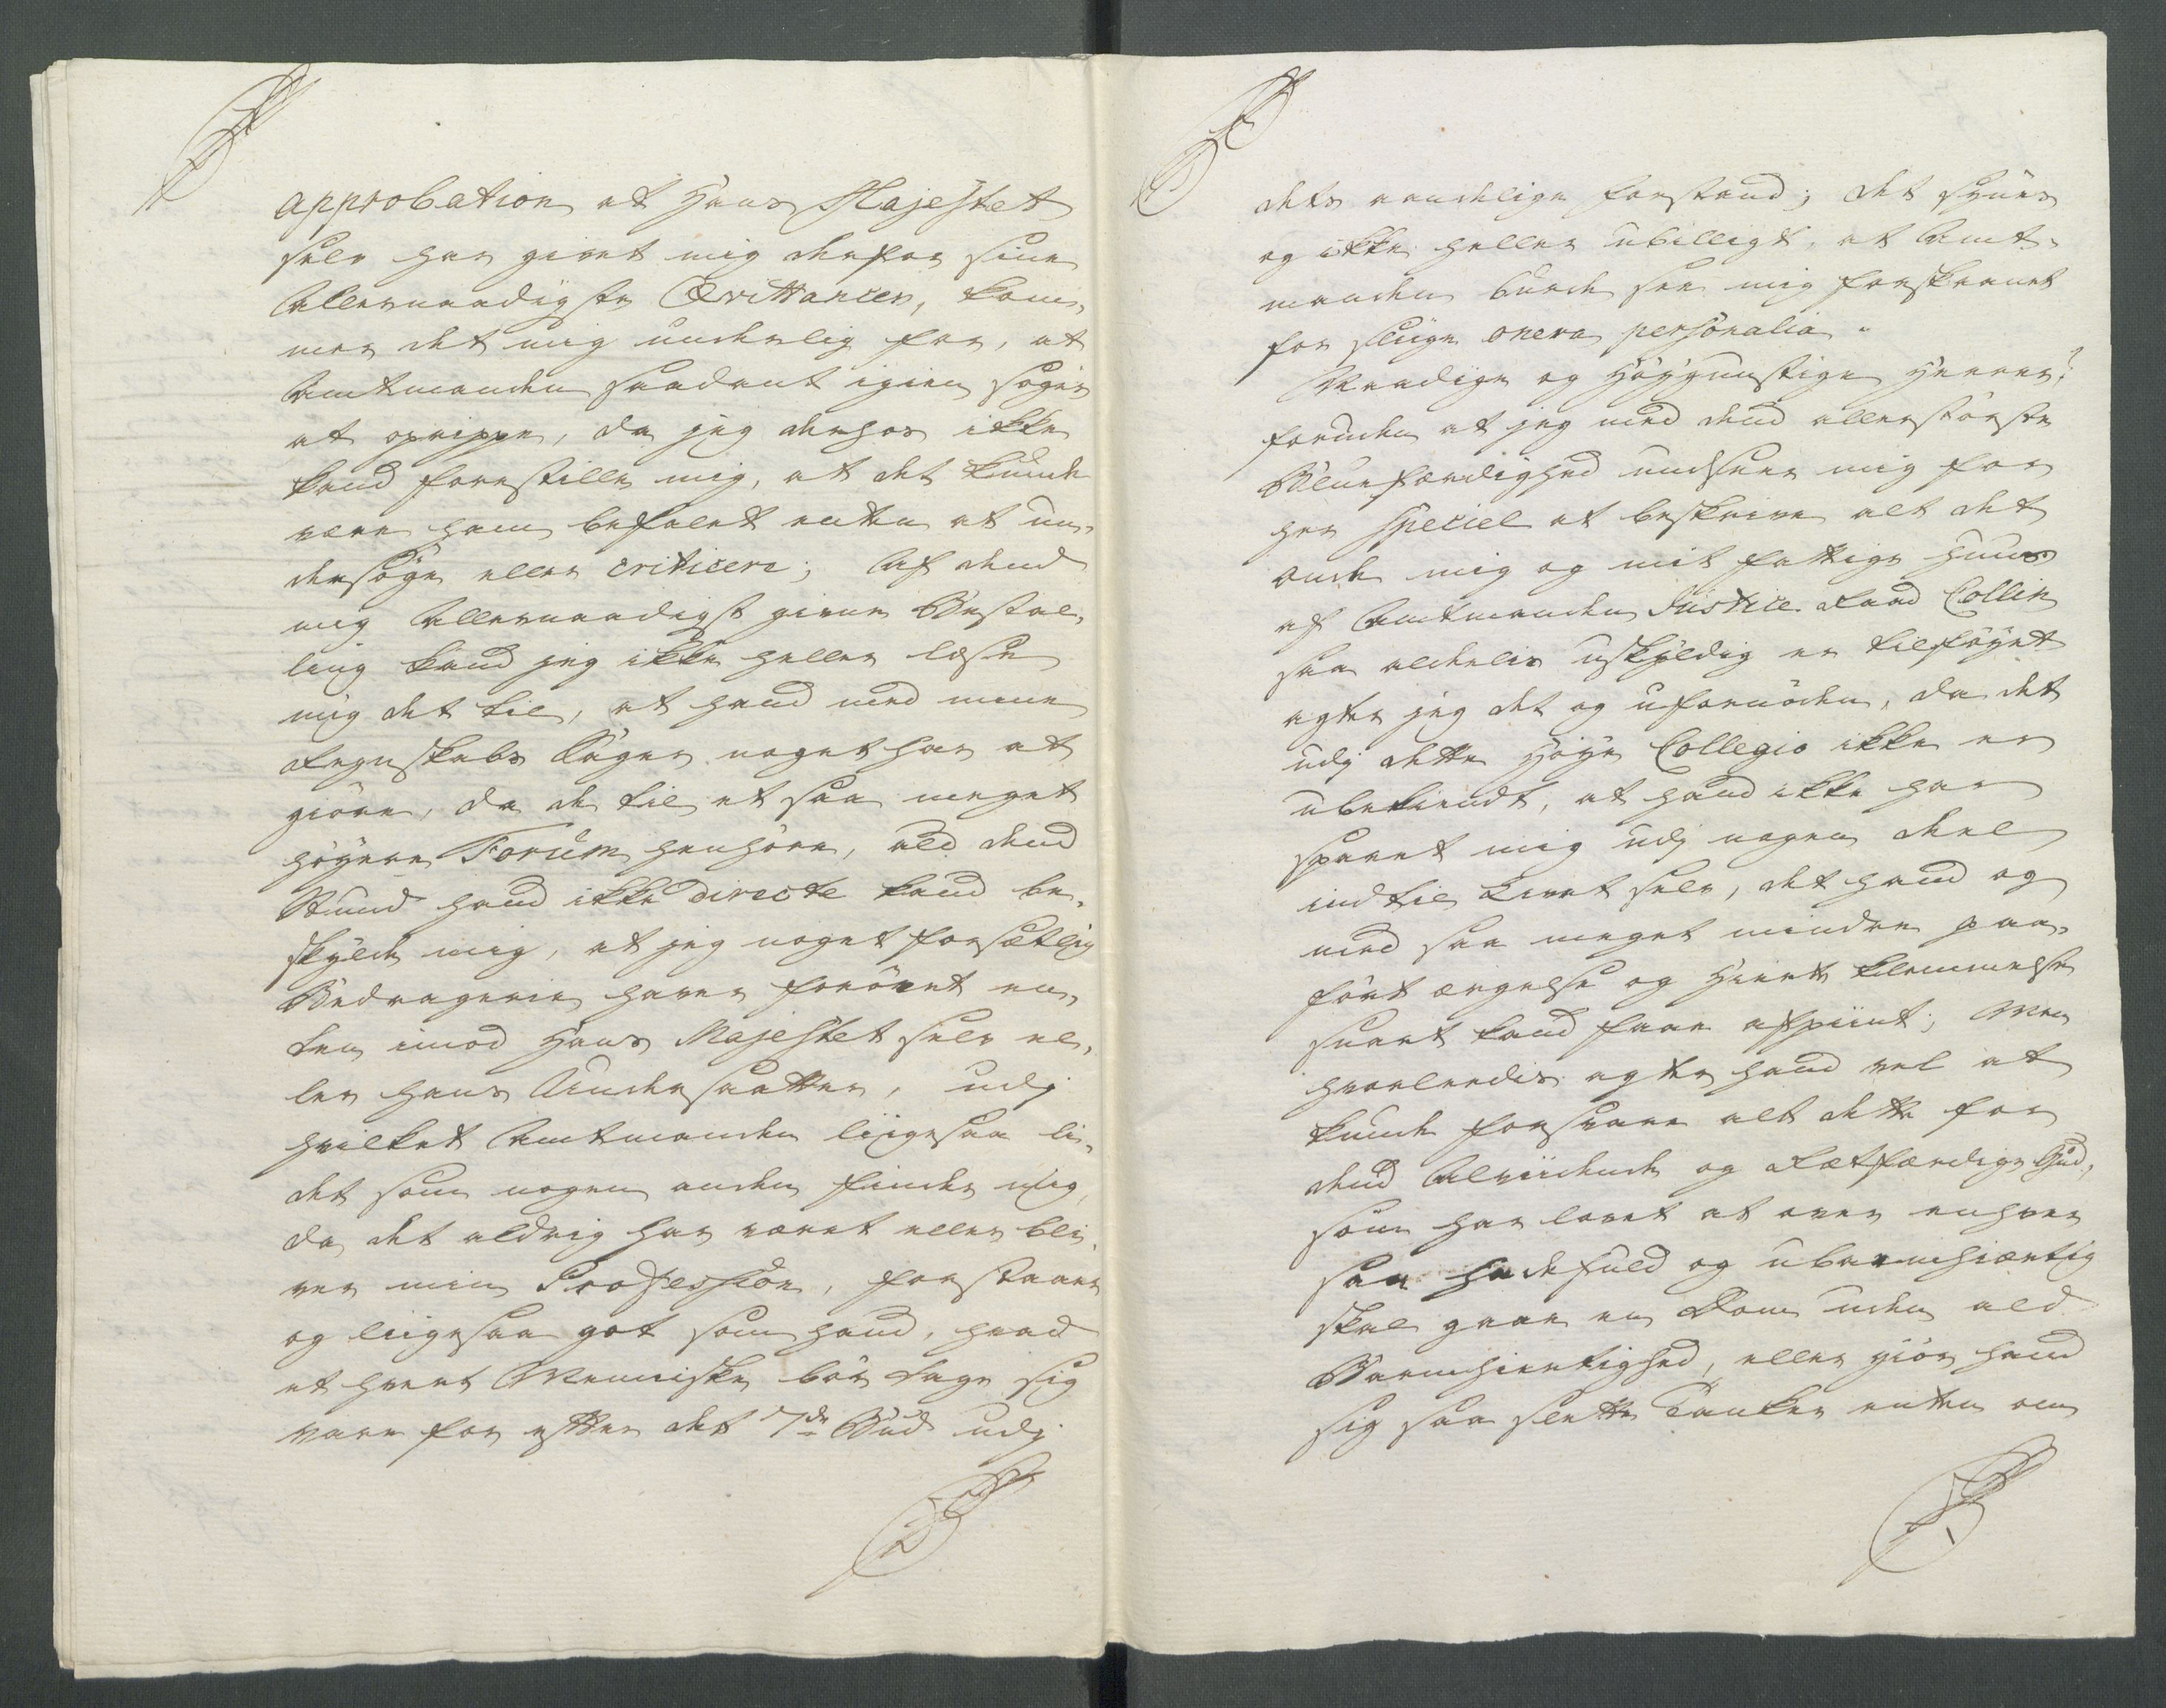 approbation at Hans Majestet
selv har givet mig derfor sine
Allernaadigste Qvittancer, kom-
mer det mig underlig for, at
Amtmanden saadant igien søger
at oprippe, da jeg derhos ikke
kand forestille mig, at det kunde
være ham befalet enten at un-
dersøge eller criticere; Af dend
mig Allernaadigst givne Bestal-
ling kand jeg ikke heller læse
mig det til, at hand med mine
Regnskabs Søger noget har at
giøre, da de til et saa meget
høyere Forum henhøre, ald dend
Stund hand ikke directe kand be-
skylde mig, at jeg noget forsætlig
Bedragerie haver forøvet en-
ten imod Hans Majestet selv el-
ler hans Undersaatter, udj
hvilket Amtmanden liigesaa li-
det som nogen anden finder mig,
da det aldrig har været eller bli-
ver min Profession, forstaaer
og liigesaa got som hand, hvad
et hvert Menniske bør tage sig
vare for efter det 7de Bud udj
dets aandelige forstand; det synes
og ikke heller ubilligt, at Amt-
manden burde see mig forskaanet
for slige onera personalia.
Naadige og Høygunstige Herrer!
foruden at jeg med dend allerstørste
Blufærdighed undseer mig for
her speciel at beskrive alt det
onde mig og mit fattige Huus
af Amtmanden Justice Raad Collin
saa aldeles uskyldig er tilføyet
agter jeg det og ufornøden, da det
udj dette Høye Collegio ikke er
ubekiendt, at hand ikke har
sparet mig udj nogen deel
ind til Livet selv, det hand og
med saa meget mindre paa-
ført ærgelse og Hierte klemmelse
snart kand faae afpiint; Men
hvorleedis agter hand vel at
kunde forsvare alt dette for
dend Alviidende og Retfærdige Gud,
som har lovet at over enhver
saa hadefuld og ubarmhiærtig
skal gaae en Dom uden ald
Barmhiertighed, eller giør hand
sig saa slette Tanker enten om